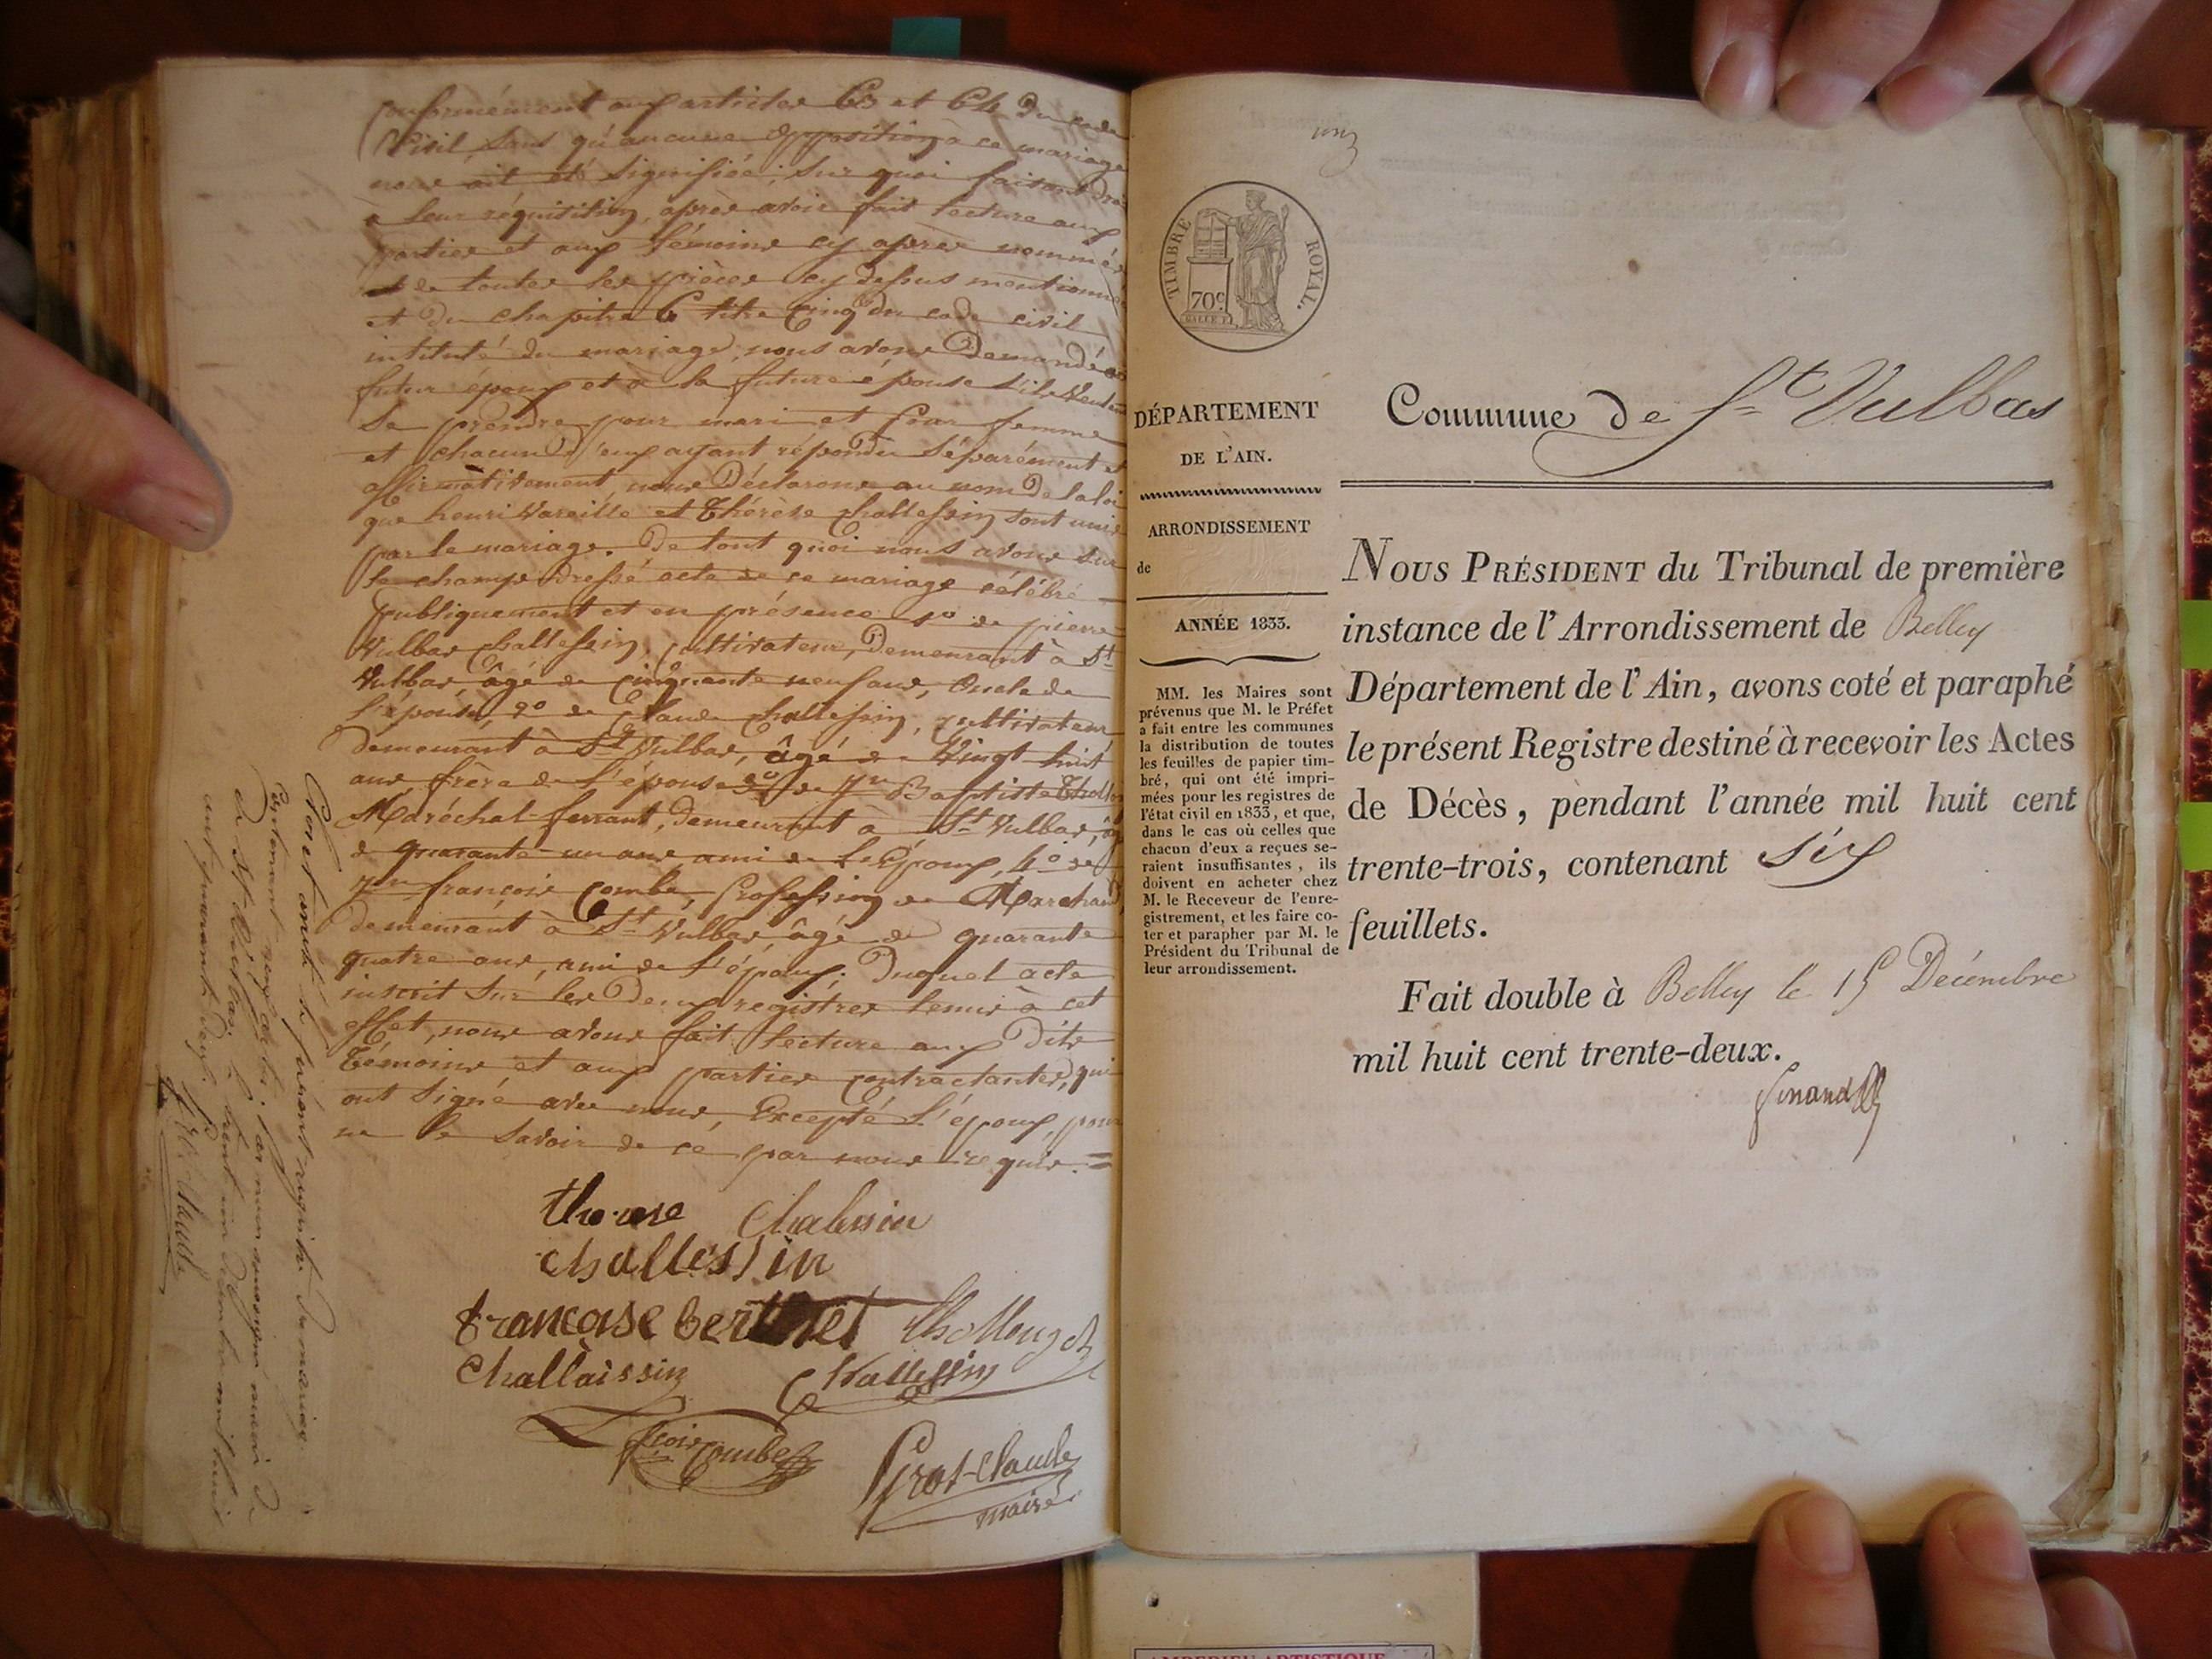 conformément aux articles 63 et 64 du code
Civil, sans qu'aucune opposition à ce mariage
nous ait été signifiée; sur quoi faisant droit
à leur réquisition, après avoir fait lecture aux
parties et aux témoins cy après nommés
et de toutes les pièces cy dessus mentionnées
et du chapitre 6 titre cinq du code civil
intitulé du mariage, nous avons demandé au
futur époux et à la future épouse s'ils veulent
se prendre pour mari et pour femme
et chacun d'eux ayant répondu séparément et
affirmativement, nous Déclarons au nom de la loi
que henri Vareille et Thérèse challessin sont unis
par le mariage. De tout quoi nous avons sur
le champ dressé acte de ce mariage célébré
publiquement et en présence 1° de pierre
Vulbas challessin, cultivateur, Demeurant à St
Vulbas, âgé de cinquante neuf ans, Oncle de
l'épouse, 2° de Claude challessin, cultivateur
demeurant à St Vulbas, âgé de Vingt huit
ans, frère de l'épouse 3° de Jn Baptiste
Maréchal-ferrant, demeurant à St Vulbas, âgé
de quarante-un ans ami de l'époux, 4° de
Jn françois Combe, profession de Marchand,
demeurant à St Vulbas, âgé de quarante
quatre ans, ami de l'époux; Duquel acte
inscrit sur les Deux registres tenus à cet
effet, nous avons fait lecture aux Dits
témoins et aux parties contractantes, qui
ont signé avec nous, Excepté l'époux, pour
ne le savoir de ce par nous requis. =
therese Chalessin
challessin
francoise berthet Thollonzet
Challaissin Challessin
fçois Combe
Gros-Claude
maire
Clos et arrêté le présent registre de mariage
par nous soussigné maire de
St Vulbas le trente un Décembre mil huit
cent trente deux.
Gros-Claude
TIMBRE ROYAL.
70c.
DÉPARTEMENT
DE L'AIN.
ARRONDISSEMENT
de
ANNÉE 1833.
MM. les Maires sont
prévenus que M. le Préfet
a fait entre les communes
la distribution de toutes
les feuilles de papier tim-
bré, qui ont été impri-
mées pour les registres de
l'état civil en 1833, et que,
dans le cas où celles que
chacun d'eux a reçues se-
raient insuffisantes, ils
doivent en acheter chez
M. le Receveur de l'enre-
gistrement, et les faire co-
ter et parapher par M. le
Président du Tribunal de
leur arrondissement.
Commune de St Vulbas
NOUS PRÉSIDENT du Tribunal de première
instance de l'Arrondissement de Belley
Département de l'Ain, avons coté et paraphé
le présent Registre destiné à recevoir les Actes
de Décès, pendant l'année mil huit cent
trente-trois, contenant six
feuillets.
Fait double à Belley le 15 Décembre
mil huit cent trente-deux.
AMBERIEU ARTISTIQUE